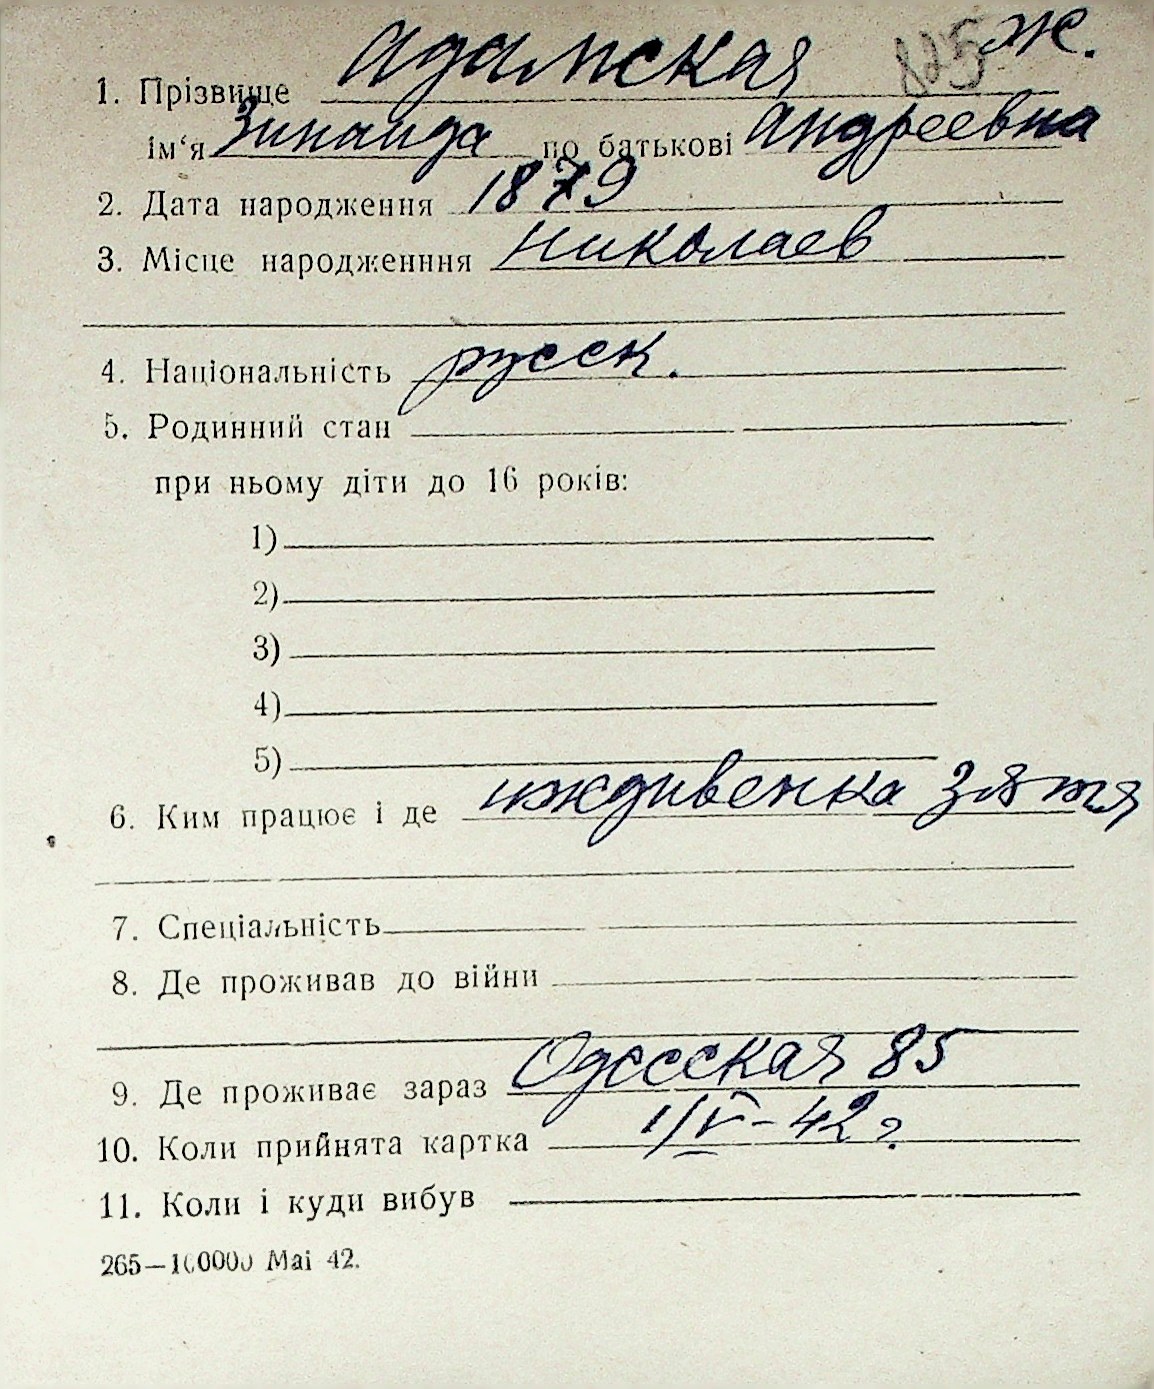 1. Прізвище Адамская 125 ж.
ім‘я Зинаида по батькові Андреевна
2. Дата народження 1879
3. Місце народженння Николаев
4. Національність русск.
5. Родинний стан
при ньому діти до 16 років:
1)
2)
3)
4)
5)
6. Ким працює і де иждивенка зятя
7. Спеціальність
8. Де проживав до війни
9. Де проживає зараз Одесская 85
10. Коли прийнята картка 1/V-42 г.
11. Коли і куди вибув
265—100000 Mai 42.